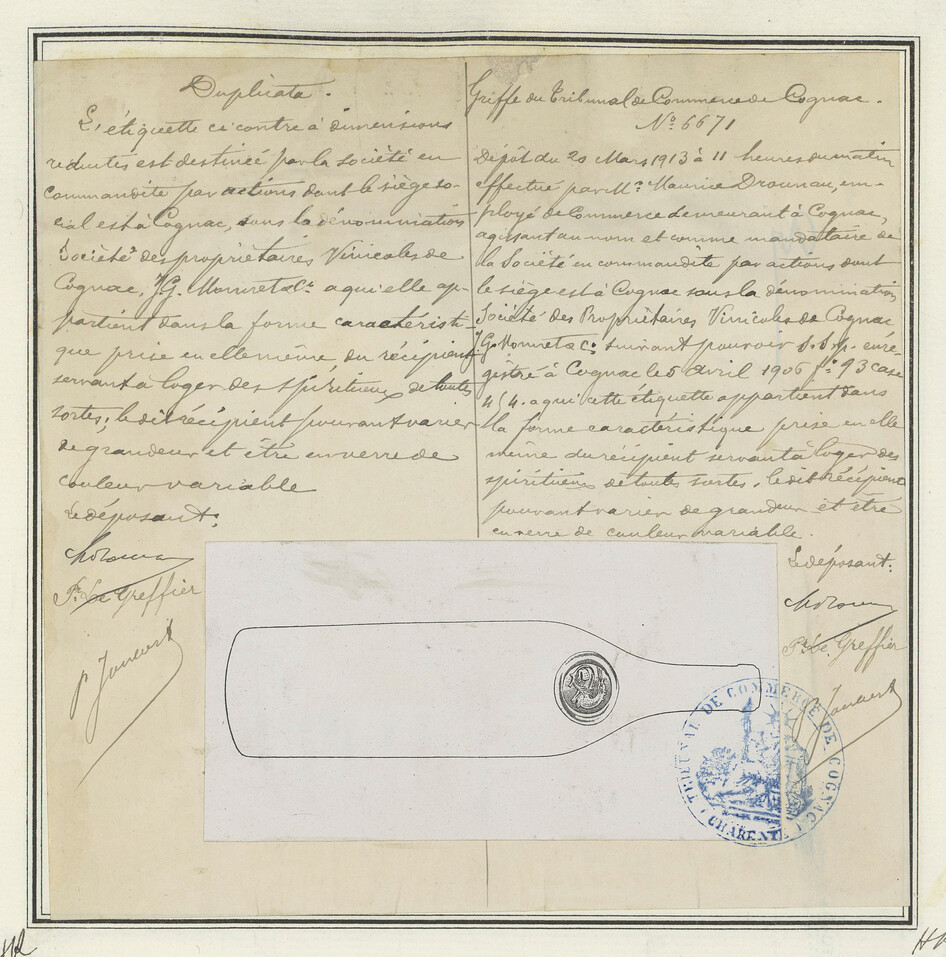 Duplicata.
L'étiquette ci contre à dimensions
réduites est destinée par la société en
commandite par actions dont le siège so-
cial est à Cognac, sous la dénomination
Société des propriétaires Vinicoles de
Cognac, J.G. Monnet & Cie à qui elle ap-
partient dans la forme caractéristi-
que prise en elle même du récipient
servant à loger des spiritueux de toutes
sortes; le dit récipient pouvant varier
de grandeur et être en verre de
couleur variable
Le déposant:
Pr. Le Greffier
Greffe du Tribunal de Commerce de Cognac.
No. 6671
Dépôt du 20 Mars 1913 à 11 heures du matin
effectué par Mr. Maurice Drounau, em-
ployé de Commerce demeurant à Cognac,
agissant au nom et comme mandataire de
la Société en commandite par actions dont
le siège est à Cognac sous la dénomination
Société des Propriétaires Vinicoles de Cognac
J.G. Monnet & Co. suivant pouvoir s.s.p. enre-
gistré à Cognac le 5 avril 1906 fo. 93 case
à qui cette étiquette appartient dans
la forme caractéristique prise en elle
même du récipient servant à loger des
spiritueux de toutes sortes, le dit récipient
pouvant varier de grandeur et être
en verre de couleur variable.
Le déposant:
Pr. Le. Greffier
TRIBUNAL DE COMMERCE DE COGNAC
CHARENTE